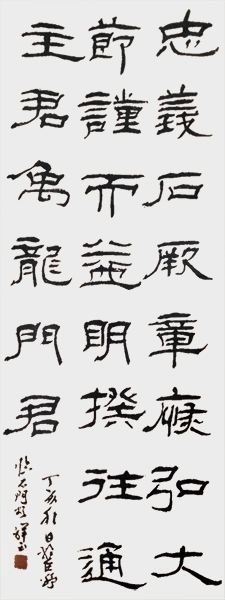 忠義石厥章癈弘大
節謹而益明撰往通
主君禹龍門君
丁亥秋日
臨石門頌